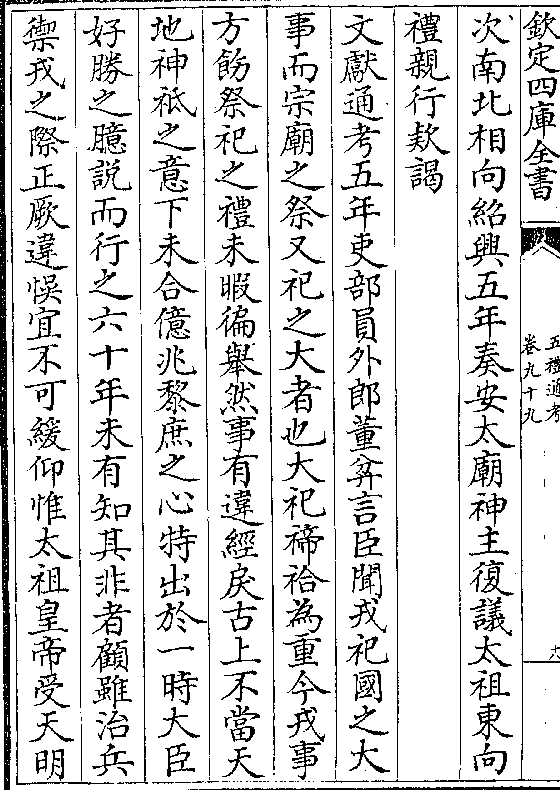 欽定四庫全書
五禮通考
卷九十九
次南北相向紹興五年奏安太廟神主復議太祖東向
禮親行欵謁
文獻通考五年吏部員外郎董弅言臣聞戎祀國之大
事而宗廟之祭又祀之大者也大祀禘祫為重今戎事
方飭祭祀之禮未暇徧舉然事有違經戾古上不當天
地神祗之意下未合億兆黎庶之心特出於一時大臣
好勝之臆説而行之六十年未有知其非者顧雖治兵
禦戎之際正厥違悞宜不可緩仰惟太祖皇帝受天明